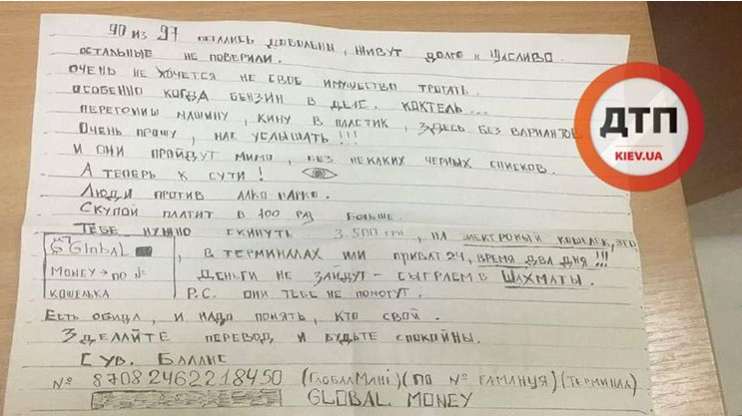 90 из 97 остались довольны, живут долго и щасливо.
остальные не поверили.
очень не хочется не свое имущество трогать.
особенно когда бензин в деле. коктель...
перегониш машину, кину в пластик, здесь без вариантов
Очень прошу, нас услышать!!!
и они пройдут мимо, без некаких черных списков.
А теперь к сути!
Люди против алко нарко.
Скупой платит в 100 раз больше.
Тебе нужно скинуть 3.500 грн, на электроный кошелек, это
Global
, в терминалах или приват 24, время два дня!!!
Money → по №
Деньги не зайдут - сыграем в Шахматы.
кошелька
P.С. они тебе не помогут.
Есть общаа, и надо понять, кто свой.
Зделайте перевод и будьте спокойны.
С ув. Баланс
№ 87082462218450 (ГлобалМані)(по № гаманця)(термінала)
GLOBAL MONEY
ДТП
KIEV.UA